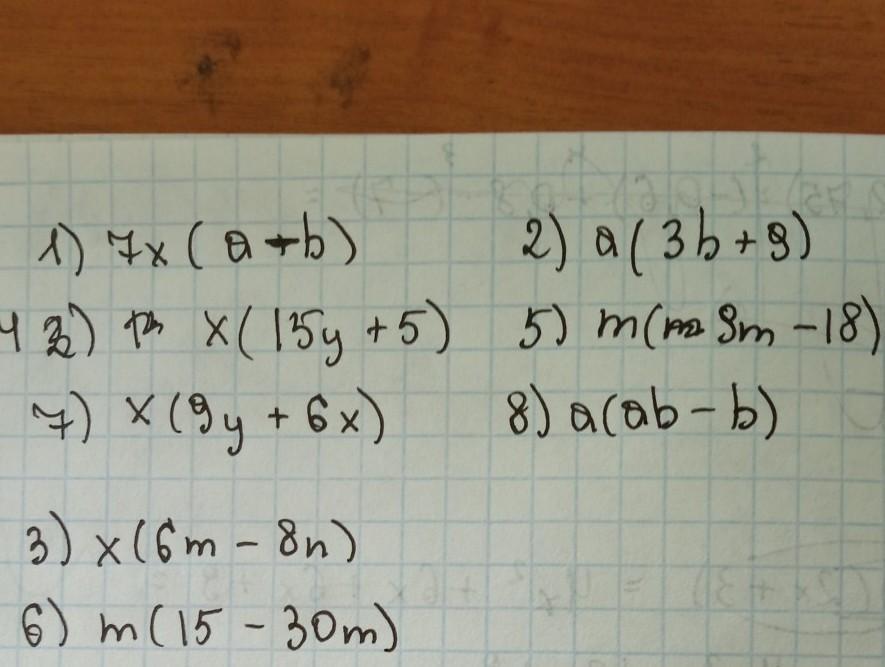 1) 7x ( a + b )    2) a ( 3b + 9 )
4) x ( 15y + 5 )    5) m ( 9m - 18 )
7) x ( 9y + 6x )    8) a ( ab - b )
3) x ( 6m - 8n )
6) m ( 15 - 30m )